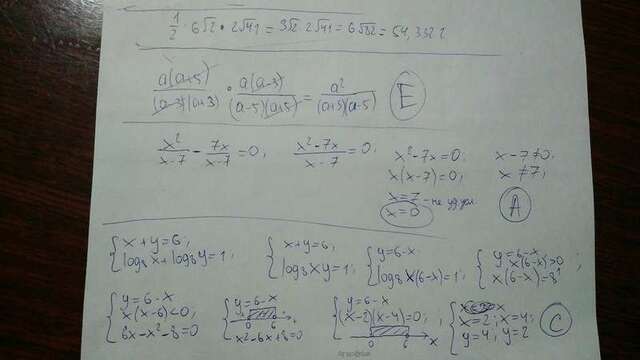 1/2 · 6√2 · 2√41 = 3√2 · 2√41 = 6√82 = 54,332 2
a(a+5)/((a-3)(a+3)) · a(a-3)/((a-5)(a+5)) = a²/((a+3)(a-5)) E
x²/(x-7) - 7x/(x-7) = 0; (x²-7x)/(x-7) = 0; x²-7x=0; x-7≠0;
x(x-7)=0; x≠7;
x=7 - не удовл
x=0 A
{x+y=6; log₈x+log₈y=1; {x+y=6; log₈xy=1; {y=6-x; log₈x(6-x)=1; {y=6-x x(6-x)>0 x(6-x)=8¹;
{y=6-x x(x-6)<0; 6x-x²-8=0 {y=6-x 0 6 x x²-6x+8=0 {y=6-x (x-2)(x-4)=0; 0 6 x {x=2; x=4; y=4; y=2 C